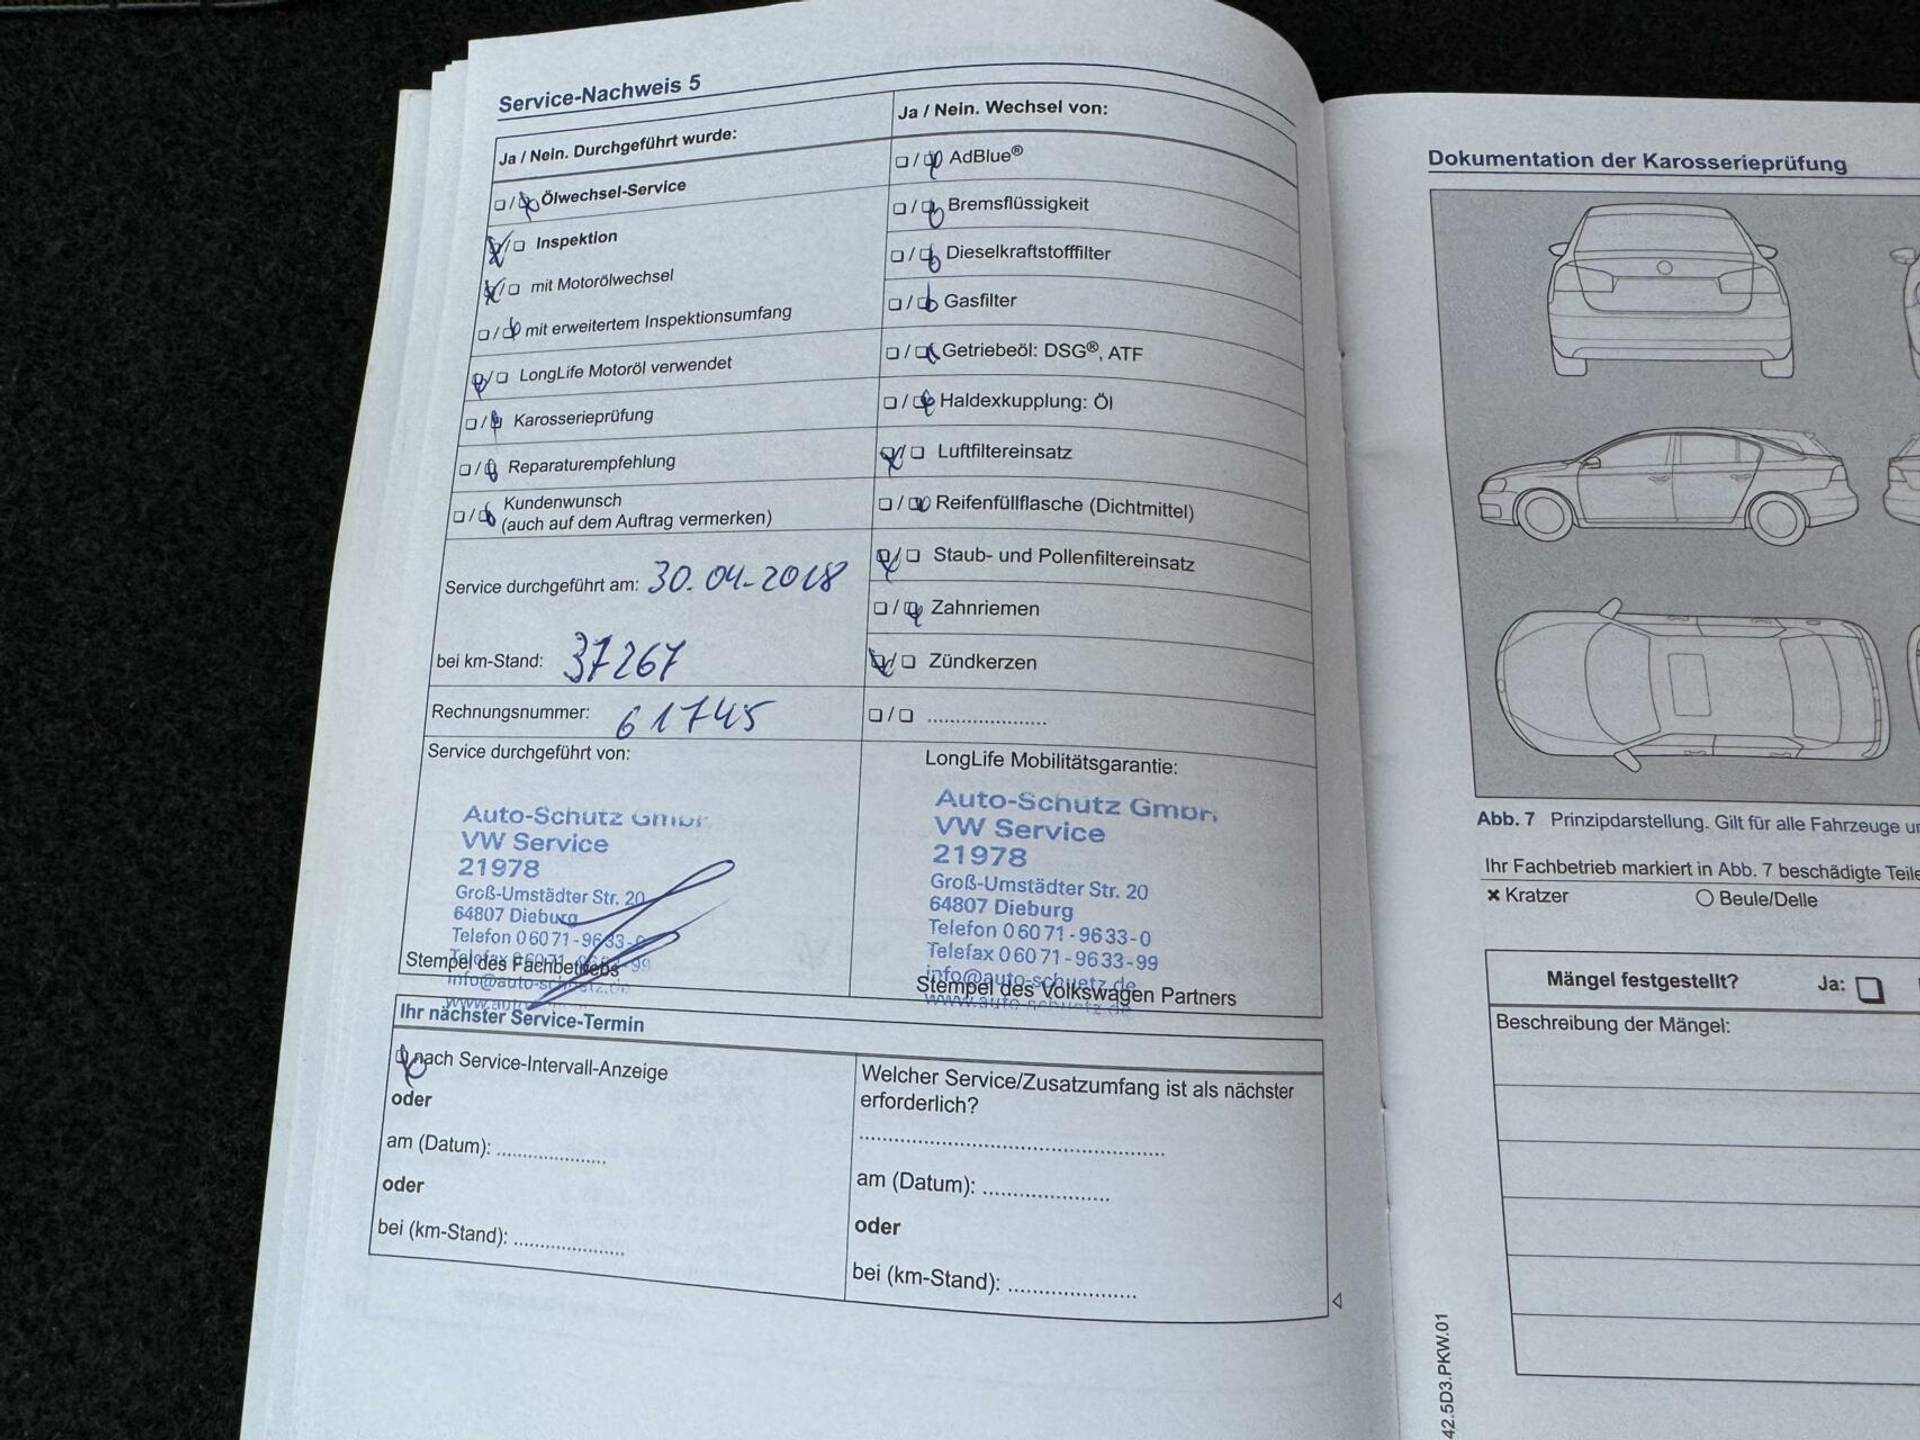 Service-Nachweis 5
Ja / Nein. Durchgeführt wurde:
❏ / ❏ Ölwechsel-Service
❏ / ❏ Inspektion
❏ / ❏ mit Motorölwechsel
❏ / ❏ mit erweitertem Inspektionsumfang
❏ / ❏ LongLife Motoröl verwendet
❏ / ❏ Karosserieprüfung
❏ / ❏ Reparaturempfehlung
❏ / ❏ Kundenwunsch
(auch auf dem Auftrag vermerken)
Service durchgeführt am: 30.04-2018
bei km-Stand: 37267
Rechnungsnummer: 61745
Service durchgeführt von:
Auto-Schutz GmbH
VW Service
21978
Groß-Umstädter Str. 20
64807 Dieburg
Telefon 06071-9633-0
Telefax 06071-9633-99
Stempel des Fachbetriebs
info@auto-schuetz.de
Ja / Nein. Wechsel von:
❏ / ❏ AdBlue®
❏ / ❏ Bremsflüssigkeit
❏ / ❏ Dieselkraftstofffilter
❏ / ❏ Gasfilter
❏ / ❏ Getriebeöl: DSG®, ATF
❏ / ❏ Haldexkupplung: Öl
❏ / ❏ Luftfiltereinsatz
❏ / ❏ Reifenfüllflasche (Dichtmittel)
❏ / ❏ Staub- und Pollenfiltereinsatz
❏ / ❏ Zahnriemen
❏ / ❏ Zündkerzen
❏ / ❏ .....................
LongLife Mobilitätsgarantie:
Auto-Schutz GmbH
VW Service
21978
Groß-Umstädter Str. 20
64807 Dieburg
Telefon 06071-9633-0
Telefax 06071-9633-99
info@auto-schuetz.de
Stempel des Volkswagen Partners
www.auto-schuetz.de
Ihr nächster Service-Termin
❏ nach Service-Intervall-Anzeige
oder
am (Datum): ...................
oder
bei (km-Stand): ...................
Welcher Service/Zusatzumfang ist als nächster
erforderlich?
......................................................
am (Datum): ......................
oder
bei (km-Stand): ......................
Dokumentation der Karosserieprüfung
Abb. 7 Prinzipdarstellung. Gilt für alle Fahrzeuge
Ihr Fachbetrieb markiert in Abb. 7 beschädigte Teile
× Kratzer
○ Beule/Delle
Mängel festgestellt? Ja: ❏
Beschreibung der Mängel:
42.5D3.PKW.01